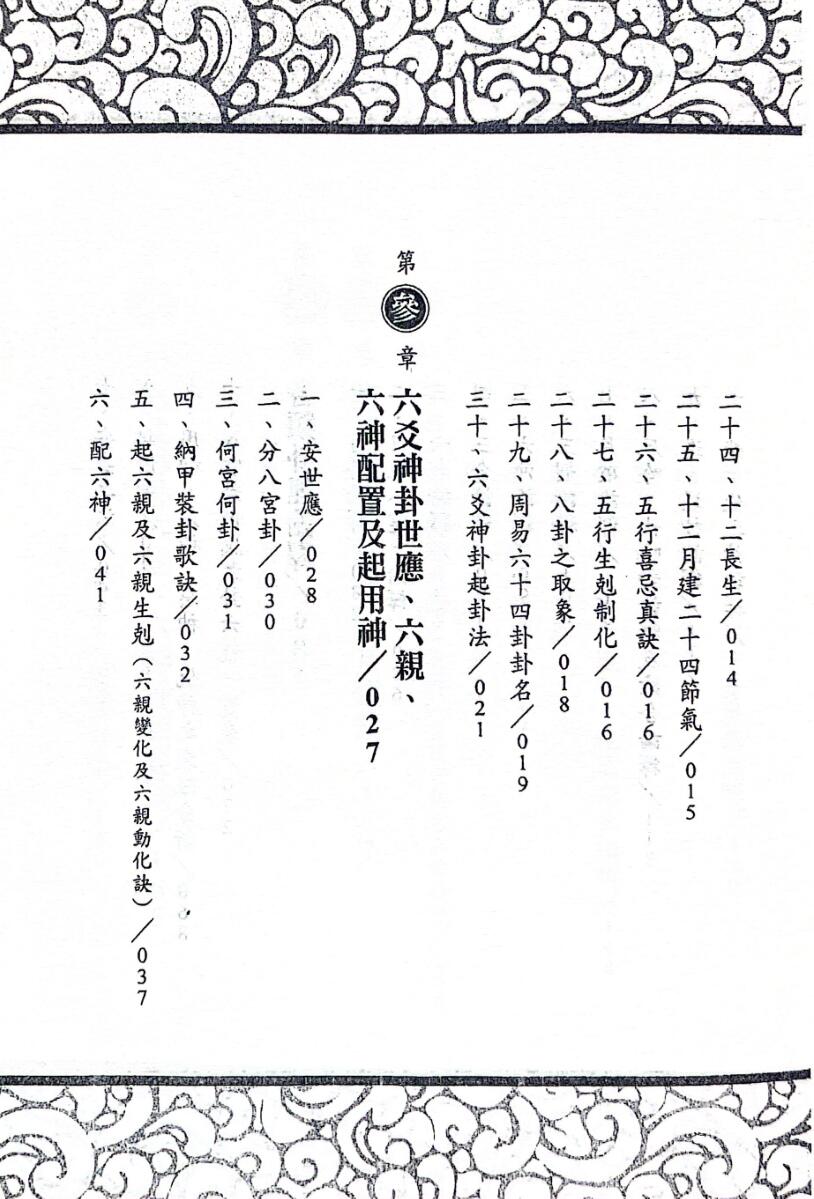 二十四、十二長生／014
二十五、十二月建二十四節氣／015
二十六、五行喜忌真訣／016
二十七、五行生剋制化／016
二十八、八卦之取象／018
二十九、周易六十四卦卦名／019
三十、六爻神卦起卦法／021
第參章
六爻神卦世應、六親、
六神配置及起用神／027
一、安世應／028
二、分八宮卦／030
三、何宮何卦／031
四、納甲裝卦歌訣／032
五、起六親及六親生剋（六親變化及六親動化訣）／037
六、配六神／041